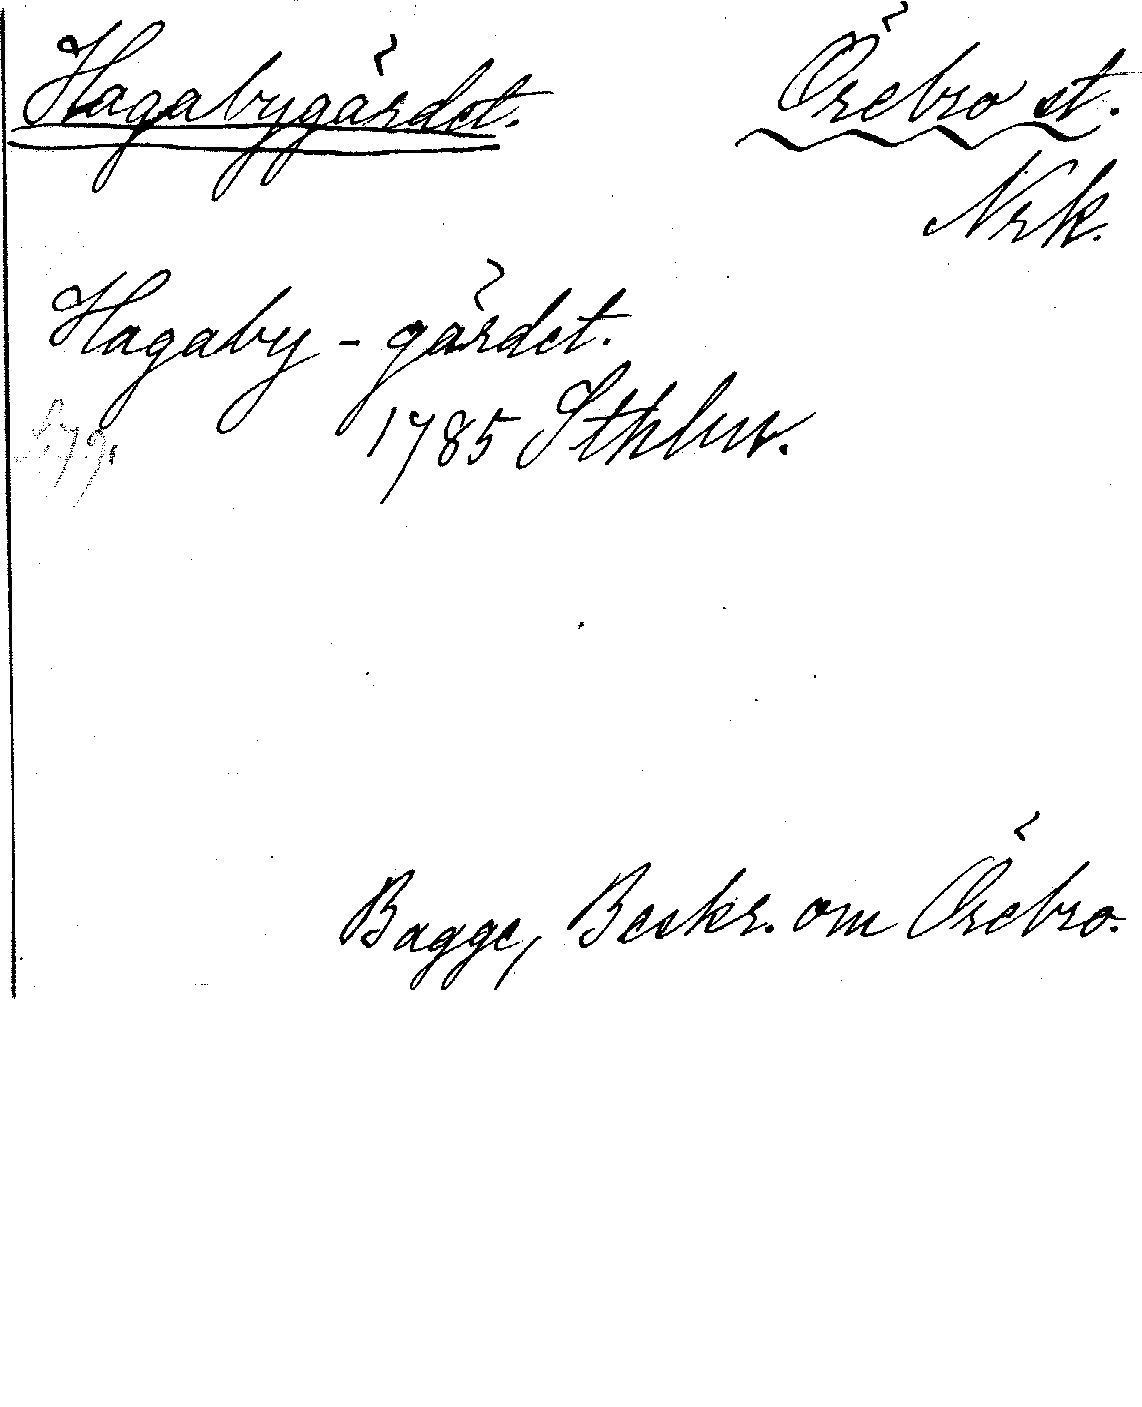 Hagabygärdet. Örebro st.
Nrk.
Hagaby - gärdet.
S. 79. 1785 Sthlm.
Bagge, Beskr. om Örebro.